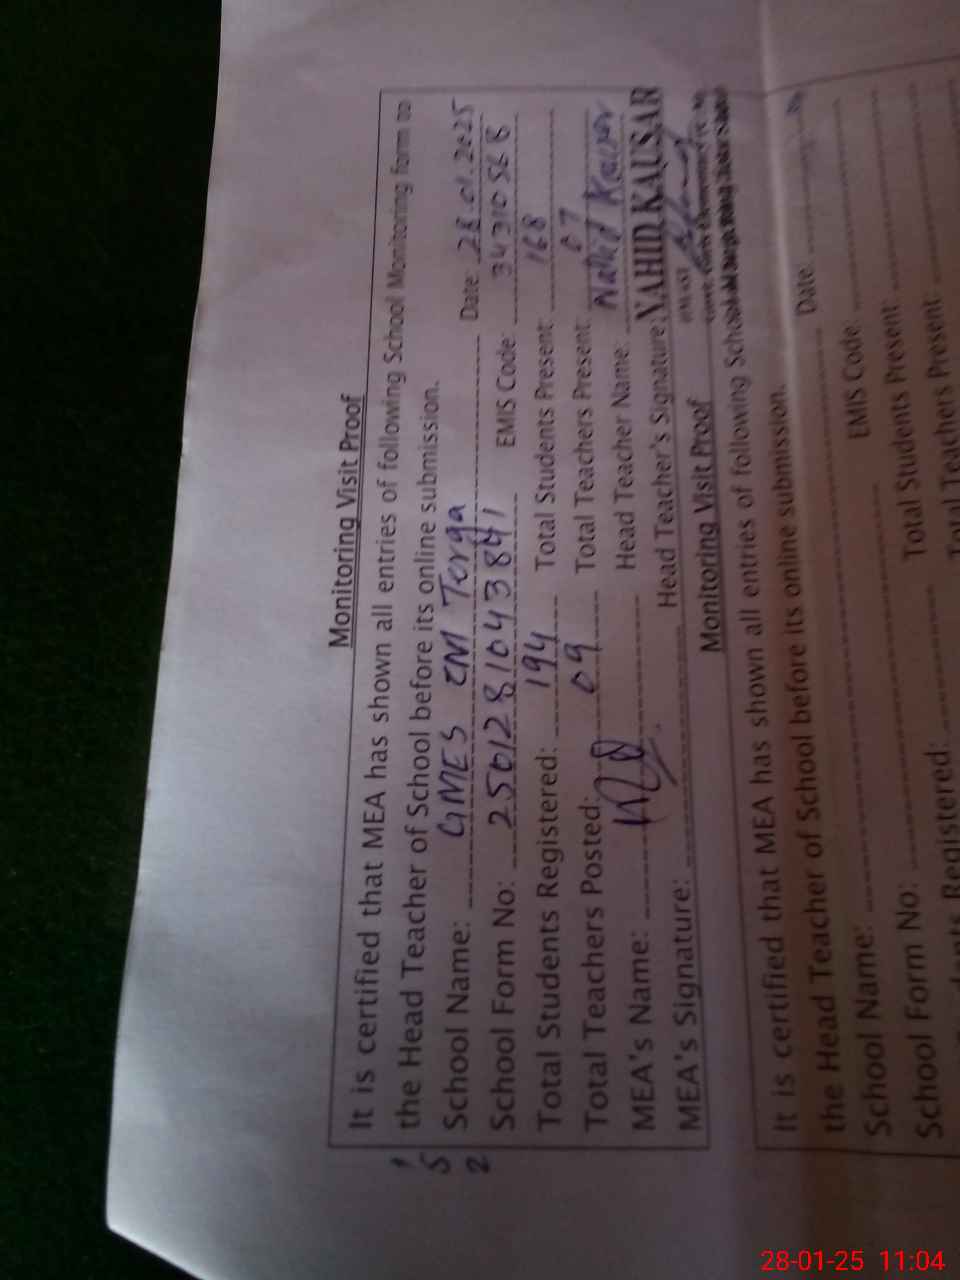 Monitoring Visit Proof
It is certified that MEA has shown all entries of following School Monitoring Form to
the Head Teacher of School before its online submission.
School Name: GMES ZM Terga Date: 28.01.2025
School Form No: 2501281043841 EMIS Code: 34310568
Total Students Registered: 194 Total Students Present: 168
Total Teachers Posted: 09 Total Teachers Present: 07
MEA's Name: Head Teacher Name: Nahid Kausar
MEA's Signature: Head Teacher's Signature: NAHID KAUSAR
Monitoring Visit Proof
It is certified that MEA has shown all entries of following School
the Head Teacher of School before its online submission.
School Name: Date:
School Form No: EMIS Code:
Registered: Total Students Present:
Total Teachers Present
28-01-25 11:04